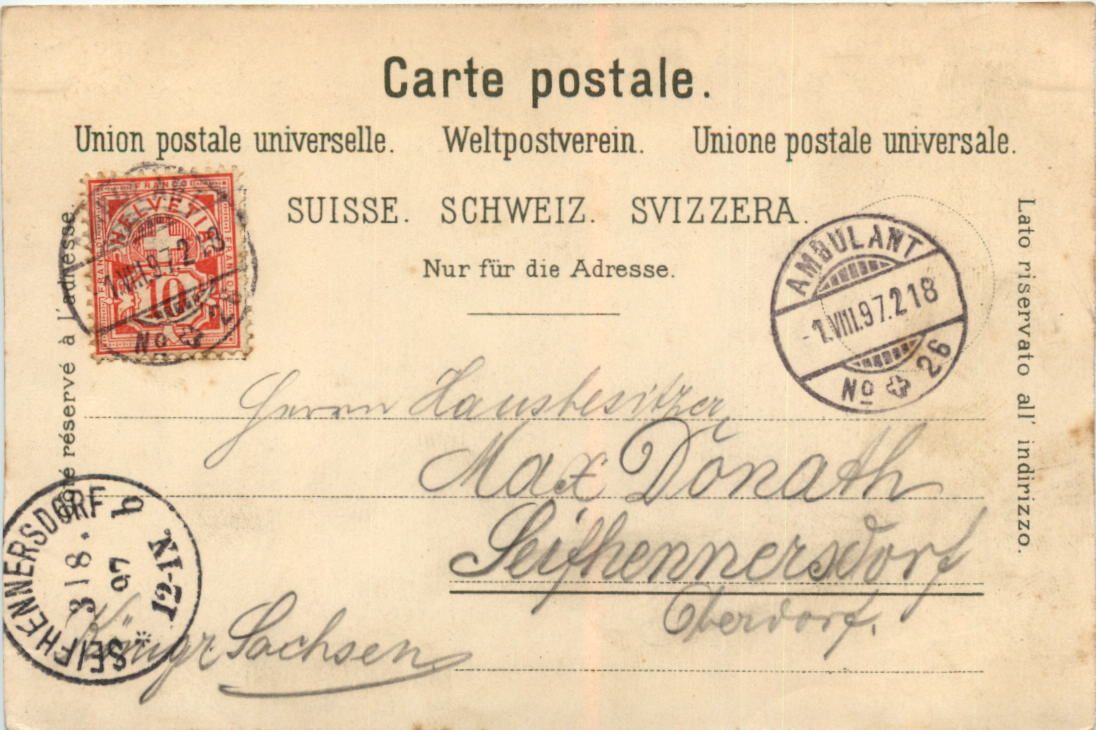 Carte postale.
Union postale universelle. Weltpostverein. Unione postale universale.
SUISSE. SCHWEIZ. SVIZZERA.
Nur für die Adresse.
Côté réservé à l'adresse.
Lato riservato all' indirizzo.
HELVETIA
FRANCO
10
1.VIII.97.2
No
AMBULANT
-1.VIII.97.218
No 26
Herrn Hausbesitzer
Max Donath
Seifhennersdorf
Oberdorf.
Königr. Sachsen
SEIFHENNERSDORF
3 18
97
12-1N.